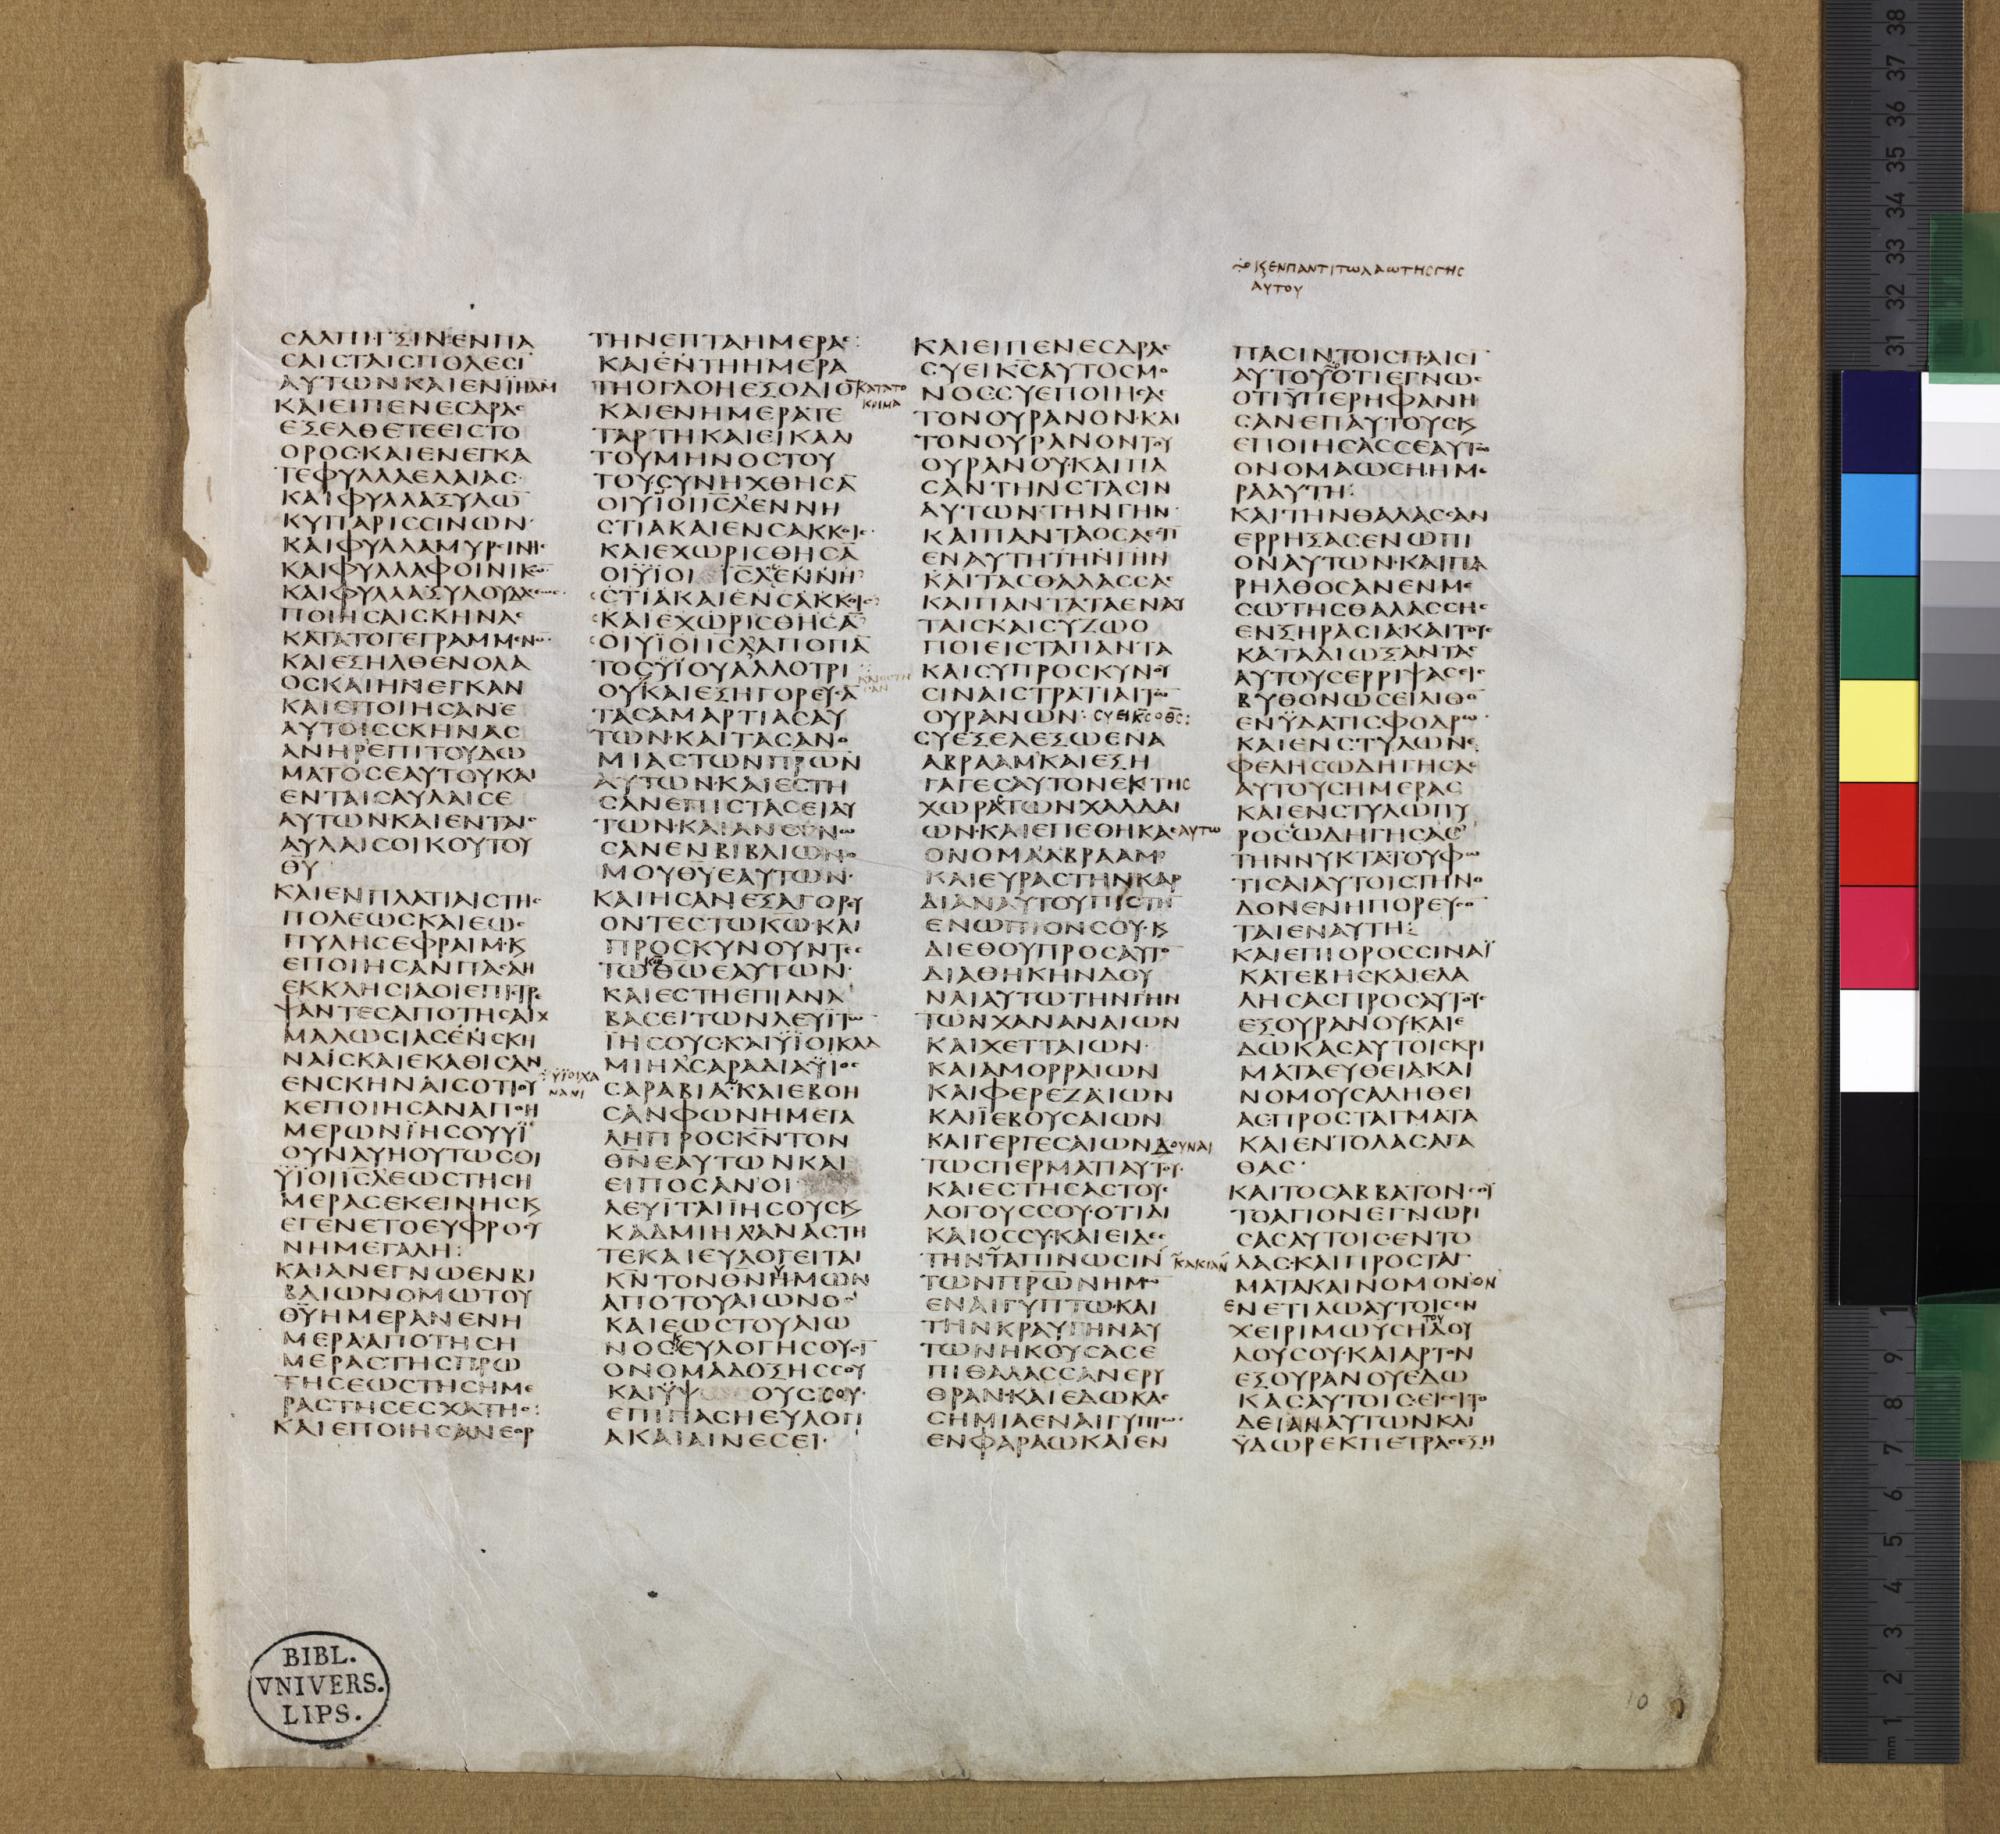 ϹΑΛΠΙΓΞΙΝΕΝΠΑ
ϹΑΙϹΤΑΙϹΠΟΛΕϹΙ
ΑΥΤΩΝΚΑΙΕΝΪΗΛΜ
ΚΑΙΕΙΠΕΝΕϹΔΡΑϹ
ΕΞΕΛΘΕΤΕΕΙϹΤΟ
ΟΡΟϹ·ΚΑΙΕΝΕΓΚΑ
ΤΕΦΥΛΛΑΕΛΑΙΑϹ·
ΚΑΙΦΥΛΛΑΞΥΛΩ̅
ΚΥΠΑΡΙϹϹΙΝΩΝ·
ΚΑΙΦΥΛΛΑΜΥΡϹΙΝΗϹ
ΚΑΙΦΥΛΛΑΦΟΙΝΙΚΩ̅
ΚΑΙΦΥΛΛΑΞΥΛΟΥΔΑϹΕΩϹ
ΠΟΙΗϹΑΙϹΚΗΝΑϹ
ΚΑΤΑΤΟΓΕΓΡΑΜΜΕΝΟΝ
ΚΑΙΕΞΗΛΘΕΝΟΛΑ
ΟϹΚΑΙΗΝΕΓΚΑΝ
ΚΑΙΕΠΟΙΗϹΑΝΕ
ΑΥΤΟΙϹϹΚΗΝΑϹ
ΑΝΗΡΕΠΙΤΟΥΔΩ
ΜΑΤΟϹΕΑΥΤΟΥΚΑΙ
ΕΝΤΑΙϹΑΥΛΑΙϹΕ
ΑΥΤΩΝΚΑΙΕΝΤΑΙϹ
ΑΥΛΑΙϹΟΙΚΟΥΤΟΥ
ΘΥ
ΚΑΙΕΝΠΛΑΤΙΑΙϹΤΗϹ
ΠΟΛΕΩϹΚΑΙΕΩϹ
ΠΥΛΗϹΕΦΡΑΙΜ·Κ
ΕΠΟΙΗϹΑΝΠΑϹΑΗ
ΕΚΚΛΗϹΙΑΟΙΕΠΙϹΤΡΕ
ΨΑΝΤΕϹΑΠΟΤΗϹΑΙΧ
ΜΑΛΩϹΙΑϹΕΝϹΚΗ
ΝΑΙϹΚΑΙΕΚΑΘΙϹΑΝ
ΕΝϹΚΗΝΑΙϹΟΤΙΟΥ
ΚΕΠΟΙΗϹΑΝΑΠΟΗ
ΜΕΡΩΝΪΗϹΟΥΥΪ
ΟΥΝΑΥΗΟΥΤΩϹΟΙ
ΫΪΟΙΙϹΛΕΩϹΤΗϹΗ
ΜΕΡΑϹΕΚΕΙΝΗϹΚ
ΕΓΕΝΕΤΟΕΥΦΡΟϹΥ
ΝΗΜΕΓΑΛΗ:
ΚΑΙΑΝΕΓΝΩΕΝΒΙ
ΒΛΙΩΝΟΜΩΤΟΥ
ΘΥΗΜΕΡΑΝΕΝΗ
ΜΕΡΑ·ΑΠΟΤΗϹΗ
ΜΕΡΑϹΤΗϹΠΡΩ
ΤΗϹΕΩϹΤΗϹΗΜΕ
ΡΑϹΤΗϹΕϹΧΑΤΗϹ:
ΚΑΙΕΠΟΙΗϹΑΝΕΟΡ
ΥΪΟΙΧΑ
ΝΑΝΙ
ΤΗΝΕΠΤΑΗΜΕΡΑϹ:
ΚΑΙΕΝΤΗΗΜΕΡΑ
ΤΗΟΓΔΟΗΕΞΟΔΙΟΝ
ΚΑΤΑΤΟ
ΚΡΙΜΑ
ΚΑΙΕΝΗΜΕΡΑΤΕ
ΤΑΡΤΗΚΑΙΕΙΚΑΔΙ
ΤΟΥΜΗΝΟϹΤΟΥ
ΤΟΥϹΥΝΗΧΘΗϹΑ̅
ΟΙΥΪΟΙΙϹΛΕΝΝΗ
ϹΤΙΑΚΑΙΕΝϹΑΚΚΟΙϹ
ΚΑΙΕΧΩΡΙϹΘΗϹΑ̅
ΟΙΫΪΟΙΙϹΛΕΝΝΗ
ϹΤΙΑΚΑΙΕΝϹΑΚΚΟΙϹ
ΚΑΙΕΧΩΡΙϹΘΗϹΑ̅
ΟΙΥΪΟΙΙϹΛΑΠΟΠΑ
ΤΟϹΫΪΟΥΑΛΛΟΤΡΙ
ΟΥΚΑΙΕΞΗΓΟΡΕΥϹΑ
ΤΑϹΑΜΑΡΤΙΑϹΑΥ
ΤΩΝ·ΚΑΙΤΑϹΑΝΟ
ΜΙΑϹΤΩΝΠΡΩΝ
ΑΥΤΩΝ·ΚΑΙΕϹΤΗ
ϹΑΝΕΠΙϹΤΑϹΕΙΑΥ
ΤΩΝ·ΚΑΙΑΝΕΓΝΩ
ϹΑΝΕΝΒΙΒΛΙΩΝΟ
ΜΟΥΘΥΕΑΥΤΩΝ·
ΚΑΙΗϹΑΝΕΞΑΓΟΡΕΥ
ΟΝΤΕϹΤΩΚΩ·ΚΑΙ
ΠΡΟϹΚΥΝΟΥΝΤΕϹ
ΤΩΘΩΕΑΥΤΩΝ·
ΚΑΙΕϹΤΗΕΠΙΑΝΑ
ΒΑϹΕΙΤΩΝΛΕΥΪΤΩ̅
ΪΗϹΟΥϹΚΑΙΫΪΟΙΚΑΔ
ΜΙΗΛϹΑΡΑΔΙΑΫΪΟϹ
ϹΑΡΑΒΙΑ·ΚΑΙΕΒΟΗ
ϹΑΝΦΩΝΗΜΕΓΑ
ΛΗΠΡΟϹΚΝΤΟΝ
ΘΝΕΑΥΤΩΝΚΑΙ
ΕΙΠΟϹΑΝΟΙ
ΛΕΥΪΤΑΙΪΗϹΟΥϹΚ
ΚΑΔΜΙΗΛ·ΑΝΑϹΤΗ
ΤΕΚΑΙΕΥΛΟΓΕΙΤΑΙ
ΚΝΤΟΝΘΝΗΜΩΝ
ΑΠΟΤΟΥΑΙΩΝΟϹ
ΚΑΙΕΩϹΤΟΥΑΙΩ
ΝΟϹΕΥΛΟΓΗϹΟΥϹΙ
ΟΝΟΜΑΔΟΞΗϹϹΟΥ
ΚΑΙΫΨΟΥϹϹΟΥ·
ΕΠΙΠΑϹΗΕΥΛΟΓΙ
ΑΚΑΙΑΙΝΕϹΕΙ·
ΚΑΙΕΙΠΕΝΕϹΔΡΑϹ
ϹΥΕΙΚϹΑΥΤΟϹΜΟ
ΝΟϹϹΥΕΠΟΙΗϹΑϹ
ΤΟΝΟΥΡΑΝΟΝ·ΚΑΙ
ΤΟΝΟΥΡΑΝΟΝΤΟΥ
ΟΥΡΑΝΟΥ·ΚΑΙΠΑ
ϹΑΝΤΗΝϹΤΑϹΙΝ
ΑΥΤΩΝ·ΤΗΝΓΗΝ·
ΚΑΙΠΑΝΤΑΟϹΑΕϹΤΙ
ΕΝΑΥΤΗΤΗΝΓΗΝ
ΚΑΙΤΑϹΘΑΛΑϹϹΑϹ
ΚΑΙΠΑΝΤΑΤΑΕΝΑΥ
ΤΑΙϹΚΑΙϹΥΖΩΟ
ΠΟΙΕΙϹΤΑΠΑΝΤΑ
ΚΑΙϹΥΠΡΟϹΚΥΝΟΥ
ϹΙΝΑΙϹΤΡΑΤΙΑΙΤΩ̅
ΟΥΡΑΝΩΝ: ϹΥΕΙΚϹΟΘϹ:
ϹΥΕΞΕΛΕΞΩΕΝΑ
ΑΒΡΑΑΜ·ΚΑΙΕΞΗ
ΓΑΓΕϹΑΥΤΟΝΕΚΤΗϹ
ΧΩΡΑϹΤΩΝΧΑΛΔΑΙ
ΩΝ·ΚΑΙΕΠΕΘΗΚΑϹΑΥΤΩ
ΟΝΟΜΑΑΒΡΑΑΜ·
ΚΑΙΕΥΡΑϹΤΗΝΚΑΡ
ΔΙΑΝΑΥΤΟΥΠΙϹΤΗ
ΕΝΩΠΙΟΝϹΟΥ·Κ
ΔΙΕΘΟΥΠΡΟϹΑΥΤΟ
ΔΙΑΘΗΚΗΝΔΟΥ
ΝΑΙΑΥΤΩΤΗΝΓΗΝ
ΤΩΝΧΑΝΑΝΑΙΩΝ
ΚΑΙΧΕΤΤΑΙΩΝ·
ΚΑΙΑΜΟΡΡΑΙΩΝ
ΚΑΙΦΕΡΕΖΑΙΩΝ
ΚΑΙΪΕΒΟΥϹΑΙΩΝ
ΚΑΙΓΕΡΓΕϹΑΙΩΝΔΟΥΝΑΙ
ΤΩϹΠΕΡΜΑΤΙΑΥΤΟΥ·
ΚΑΙΕϹΤΗϹΑϹΤΟΥϹ
ΛΟΓΟΥϹϹΟΥ·ΟΤΙΔΙ
ΚΑΙΟϹϹΥ·ΚΑΙΕΙΔΕϹ
ΤΗΝΤΑΠΙΝΩϹΙΝ ΚΑΚΙΑΝ
ΤΩΝΠΡΩΝΗΜΩ̅
ΕΝΑΙΓΥΠΤΩ·ΚΑΙ
ΤΗΝΚΡΑΥΓΗΝΑΥ
ΤΩΝΗΚΟΥϹΑϹΕ
ΠΙΘΑΛΑϹϹΑΝΕΡΥ
ΘΡΑΝ·ΚΑΙΕΔΩΚΑϹ
ϹΗΜΙΑΕΝΑΙΓΥΠΤΩ·
ΕΝΦΑΡΑΩΚΑΙΕΝ
ΚΕΝΠΑΝΤΙΤΩΛΑΩΤΗϹΓΗϹ
ΑΥΤΟΥ
ΠΑϹΙΝΤΟΙϹΠΑΙϹΙ
ΑΥΤΟΥΟΤΙΕΓΝΩϹ
ΟΤΙΫΠΕΡΗΦΑΝΗ
ϹΑΝΕΠΑΥΤΟΥϹΚ
ΕΠΟΙΗϹΑϹϹΕΑΥΤΩ
ΟΝΟΜΑΩϹΗΗΜΕ
ΡΑΑΥΤΗ:
ΚΑΙΤΗΝΘΑΛΑϹϹΑΝ
ΕΡΡΗΞΑϹΕΝΩΠΙ
ΟΝΑΥΤΩΝ·ΚΑΙΠΑ
ΡΗΛΘΟϹΑΝΕΝΜΕ
ϹΩΤΗϹΘΑΛΑϹϹΗϹ
ΕΝΞΗΡΑϹΙΑΚΑΙΤΟΥϹ
ΚΑΤΑΔΙΩΞΑΝΤΑϹ
ΑΥΤΟΥϹΕΡΡΙΨΑϹΕΙϹ
ΒΥΘΟΝΩϹΕΙΛΙΘΟ̅
ΕΝΫΔΑΤΙϹΦΟΔΡΩ·
ΚΑΙΕΝϹΤΥΛΩΝΕ
ΦΕΛΗϹΩΔΗΓΗϹΑϹ
ΑΥΤΟΥϹΗΜΕΡΑϹ
ΚΑΙΕΝϹΤΥΛΩΠΥ
ΡΟϹΩΔΗΓΗϹΑϹ
ΤΗΝΝΥΚΤΑΤΟΥΦΩ
ΤΙϹΑΙΑΥΤΟΙϹΤΗΝΟ
ΔΟΝΕΝΗΠΟΡΕΥϹΟ̅
ΤΑΙΕΝΑΥΤΗ:
ΚΑΙΕΠΙΟΡΟϹϹΙΝΑΪ
ΚΑΤΕΒΗϹΚΑΙΕΛΑ
ΛΗϹΑϹΠΡΟϹΑΥΤΟΥϹ
ΕΞΟΥΡΑΝΟΥΚΑΙΕ
ΔΩΚΑϹΑΥΤΟΙϹΚΡΙ
ΜΑΤΑΕΥΘΕΙΑΚΑΙ
ΝΟΜΟΥϹΑΛΗΘΕΙ
ΑϹ·ΠΡΟϹΤΑΓΜΑΤΑ
ΚΑΙΕΝΤΟΛΑϹΑΓΑ
ΘΑϹ·
ΚΑΙΤΟϹΑΒΒΑΤΟΝϹΟΥ
ΤΟΑΓΙΟΝΕΓΝΩΡΙ
ϹΑϹΑΥΤΟΙϹ·ΕΝΤΟ
ΛΑϹ·ΚΑΙΠΡΟϹΤΑΓ
ΜΑΤΑΚΑΙΝΟΜΟΝ
ΕΝΕΤΙΛΩΑΥΤΟΙϹΕΝ
ΧΕΙΡΙΜΩΥϹΗΔΟΥ
ΛΟΥϹΟΥ·ΚΑΙΑΡΤΟΝ
ΕΞΟΥΡΑΝΟΥΕΔΩ
ΚΑϹΑΥΤΟΙϹ·ΕΙϹϹΙΤΟ
ΔΕΙΑΝΑΥΤΩΝΚΑΙ
ΫΔΩΡΕΚΠΕΤΡΑϹΕΞΗ
BIBL.
VNIVERS.
LIPS.
10